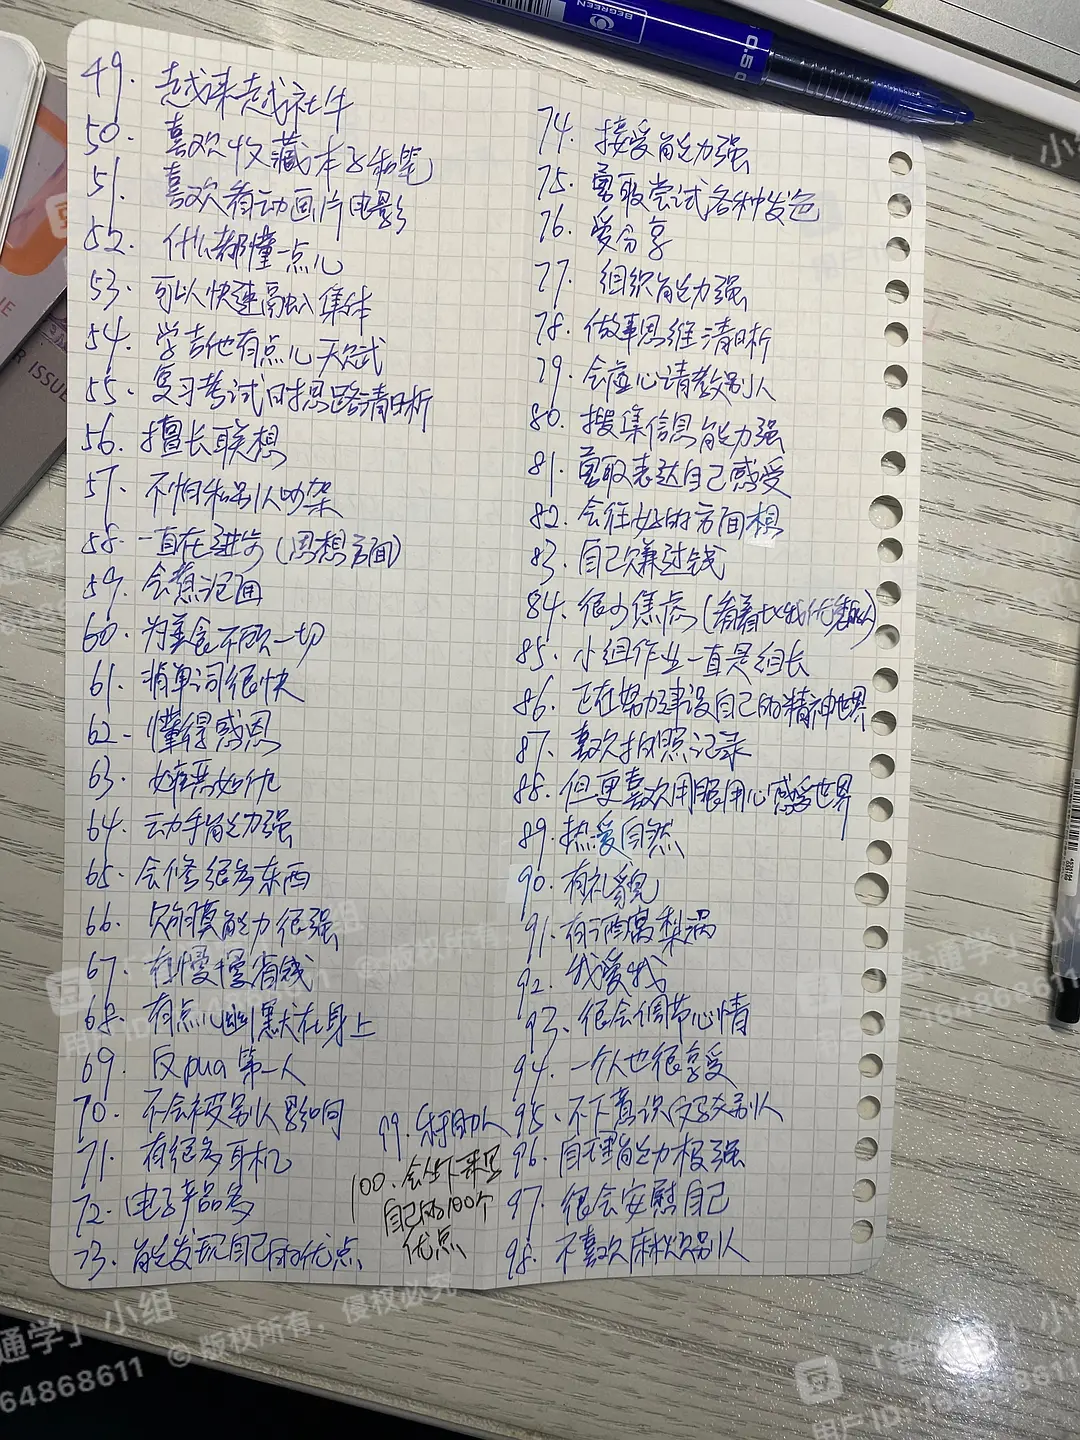 BEGREEN
0.5
49. 越来越社牛
50. 喜欢收藏本子和笔
51. 喜欢看动画片电影
52. 什么都懂一点儿
53. 可以快速融入集体
54. 学吉他有点儿天赋
55. 复习考试时思路清晰
56. 擅长联想
57. 不怕和别人吵架
58. 一直在进步(思想方面)
59. 会煮泡面
60. 为美食不顾一切
61. 背单词很快
62. 懂得感恩
63. 嫉恶如仇
64. 动手能力强
65. 会修很多东西
66. 财商能力很强
67. 在慢慢省钱
68. 有点儿幽默在身上
69. 反pua第一人
70. 不会被别人影响
71. 有很多耳机
72. 电子产品多
73. 能发现自己的优点
74. 接受能力强
75. 勇敢尝试各种发色
76. 爱分享
77. 组织能力强
78. 做事思维清晰
79. 会虚心请教别人
80. 搜集信息能力强
81. 勇敢表达自己感受
82. 会往好的方面想
83. 自己赚过钱
84. 很少焦虑(看着比我优秀的人)
85. 小组作业一直是组长
86. 正在努力建设自己的精神世界
87. 喜欢拍照记录
88. 但更喜欢用眼用心感受世界
89. 热爱自然
90. 有礼貌
91. 有酒窝梨涡
92. 我爱我
93. 很会调节心情
94. 一个人也很享受
95. 不下意识讨好别人
96. 自理能力极强
97. 很会安慰自己
98. 不喜欢麻烦别人
99. 乐于助人
100. 会坐下来写
自己的100个
优点
ISSUE
「普通学」小组
用户ID: 164868611
© 版权所有，侵权必究